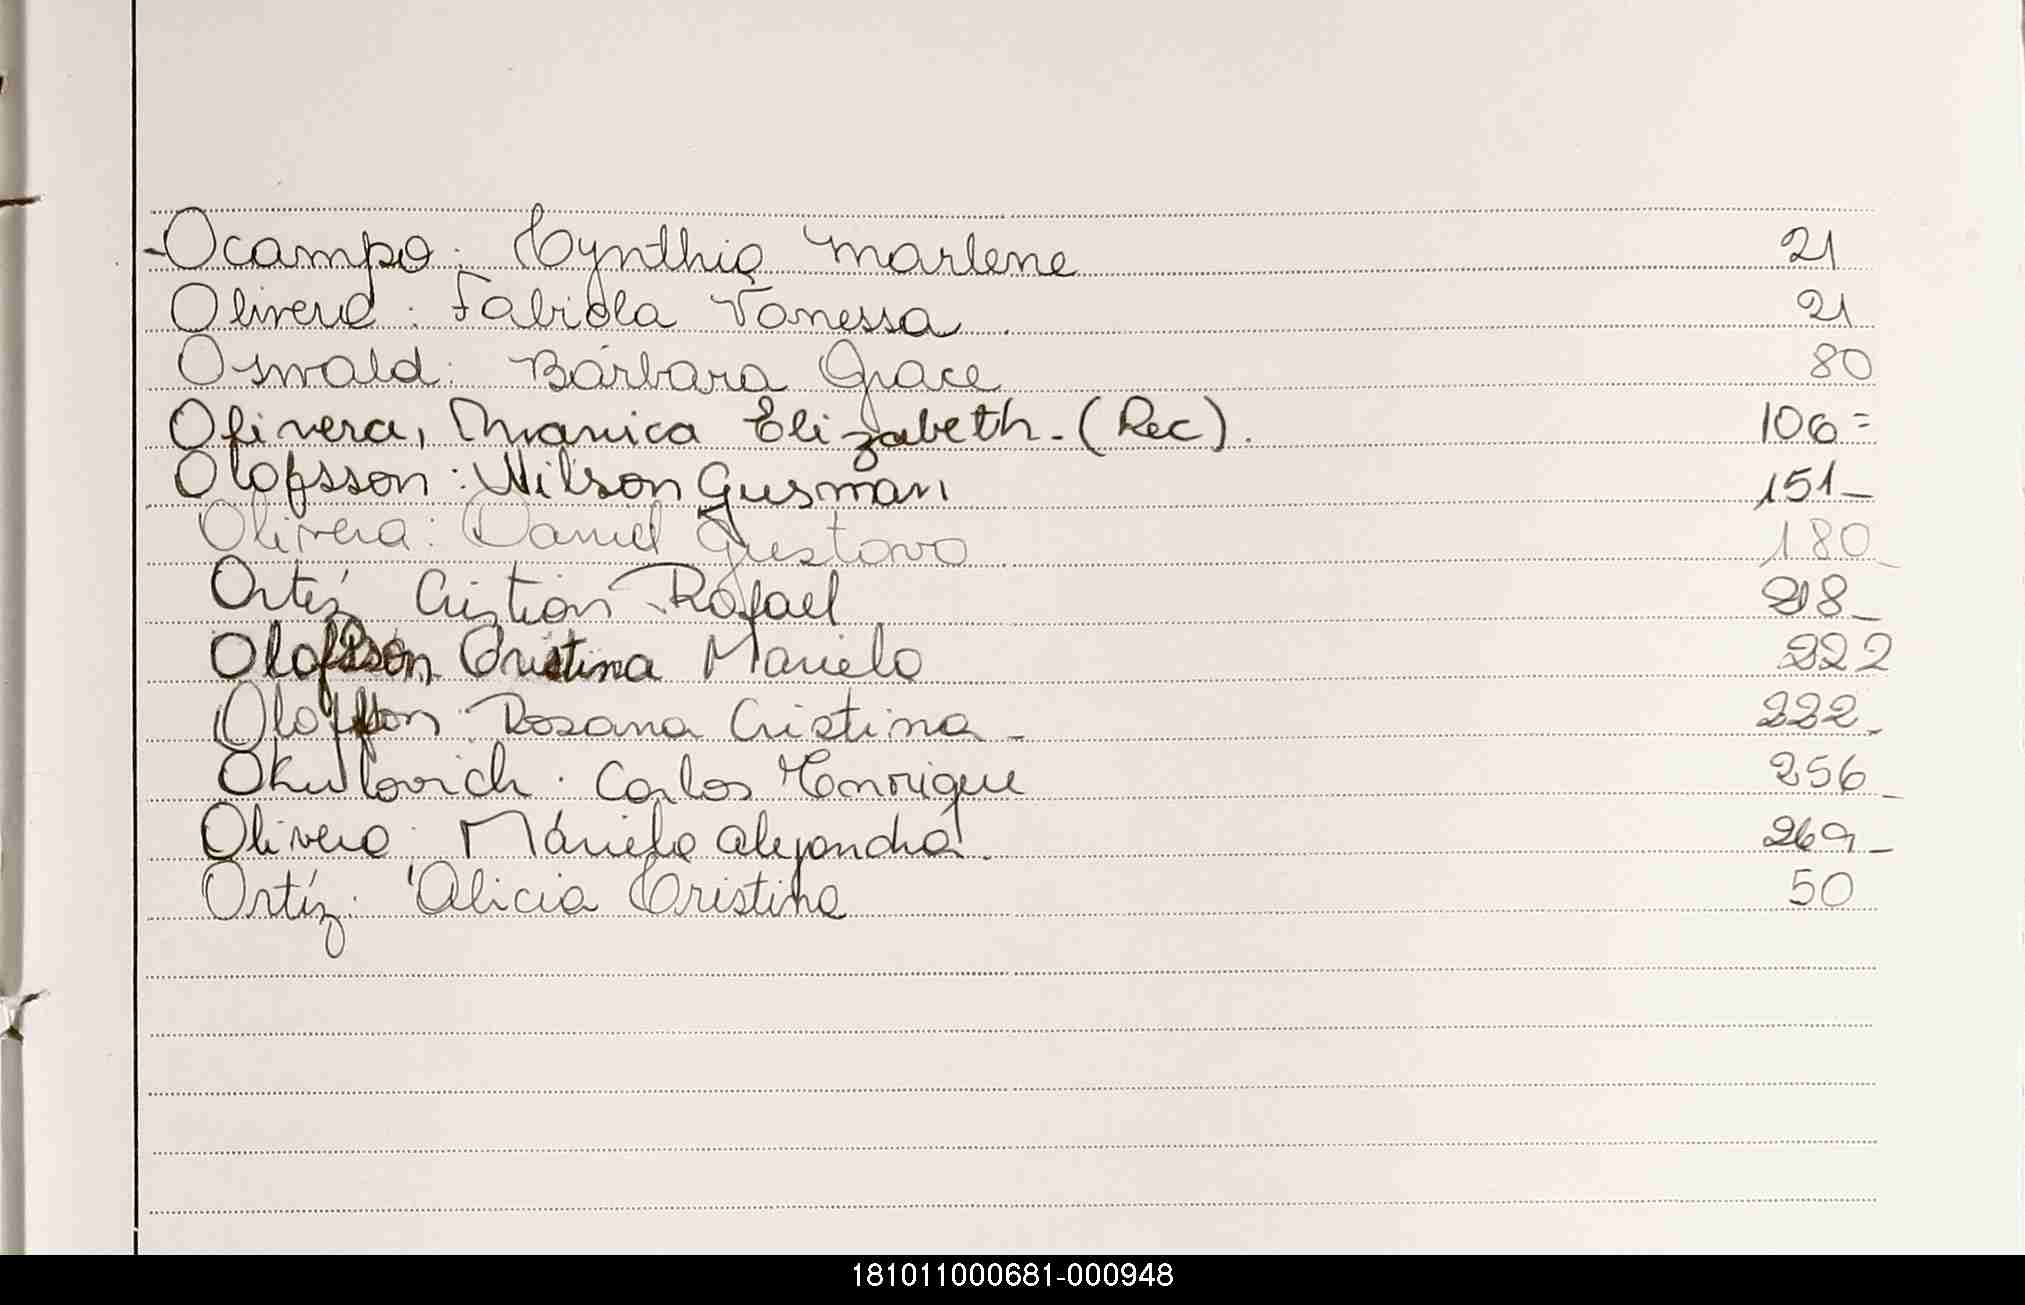 Ocampo: Cynthia Marlene 21
Olivera: Fabiola Vanessa 21
Oswald: Bárbara Grace 80
Olivera, Mónica Elizabeth. (Rec). 106=
Olofsson: Wilson Gusman 151_
Olivera: Daniel Gustavo 180_
Ortíz Cristian Rafael 218_
Olofsson Cristina Mariela 222
Olofsson: Rosana Cristina_ 222_
Okulovich: Carlos Henrique 256_
Olivera: Mariela Alejandra. 269_
Ortíz: Alicia Cristina 50
181011000681-000948